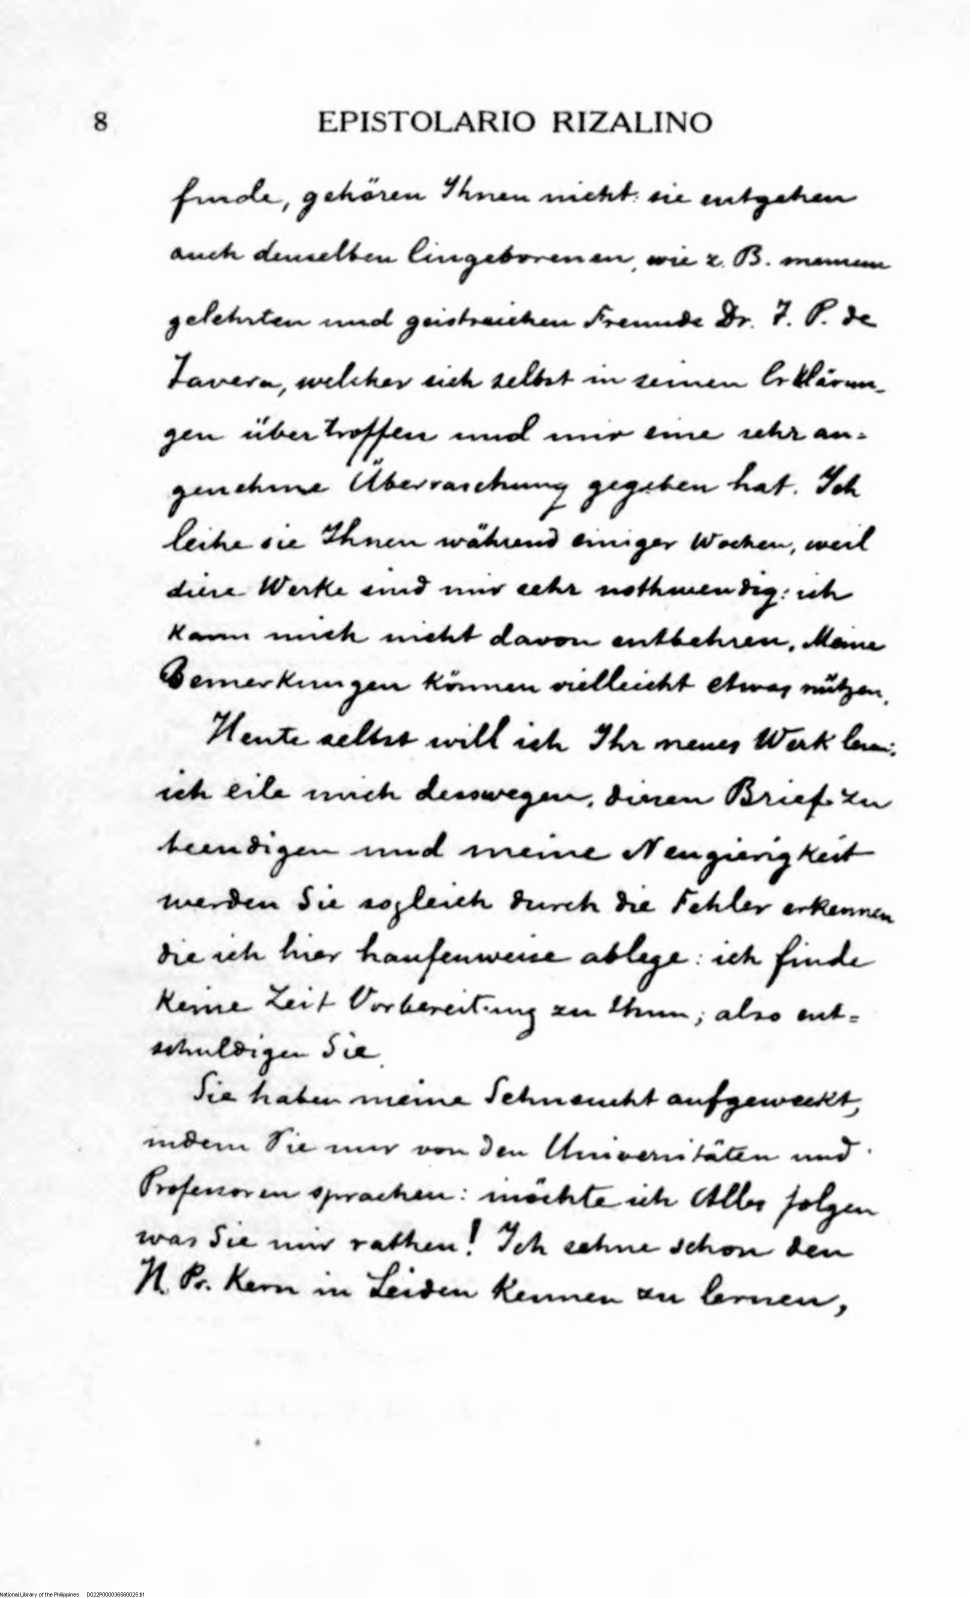 8 EPISTOLARIO RIZALINO
finde, gehören Ihnen nicht: sie entgehen
auch denselben Eingeborenen, wie z. B. meinem
gelehrten und geistreichen Freunde Dr. T. P. de
Tavera, welcher sich selbst in seinen Erklärun-
gen übertroffen und mir eine sehr an-
genehme Überraschung gegeben hat. Ich
leihe sie Ihnen während einiger Wochen, weil
diese Werke sind mir sehr nothwendig: ich
kann mich nicht davon entbehren. Meine
Bemerkungen können vielleicht etwas nützen.
Heute selbst will ich Ihr neues Werk lesen:
ich eile mich desswegen, diesen Brief zu
beendigen und meine Neugierigkeit
werden Sie sogleich durch die Fehler erkennen
die ich hier haufenweise ablege: ich finde
keine Zeit Vorbereitung zu thun; also ent=
schuldigen Sie.
Sie haben meine Sehnsucht aufgeweckt,
indem Sie mir von den Universitäten und
Professoren sprachen: möchte ich Alles folgen
was Sie mir rathen! Ich sehne schon den
H. Pr. Kern in Leiden kennen zu lernen,
National Library of the Philippines